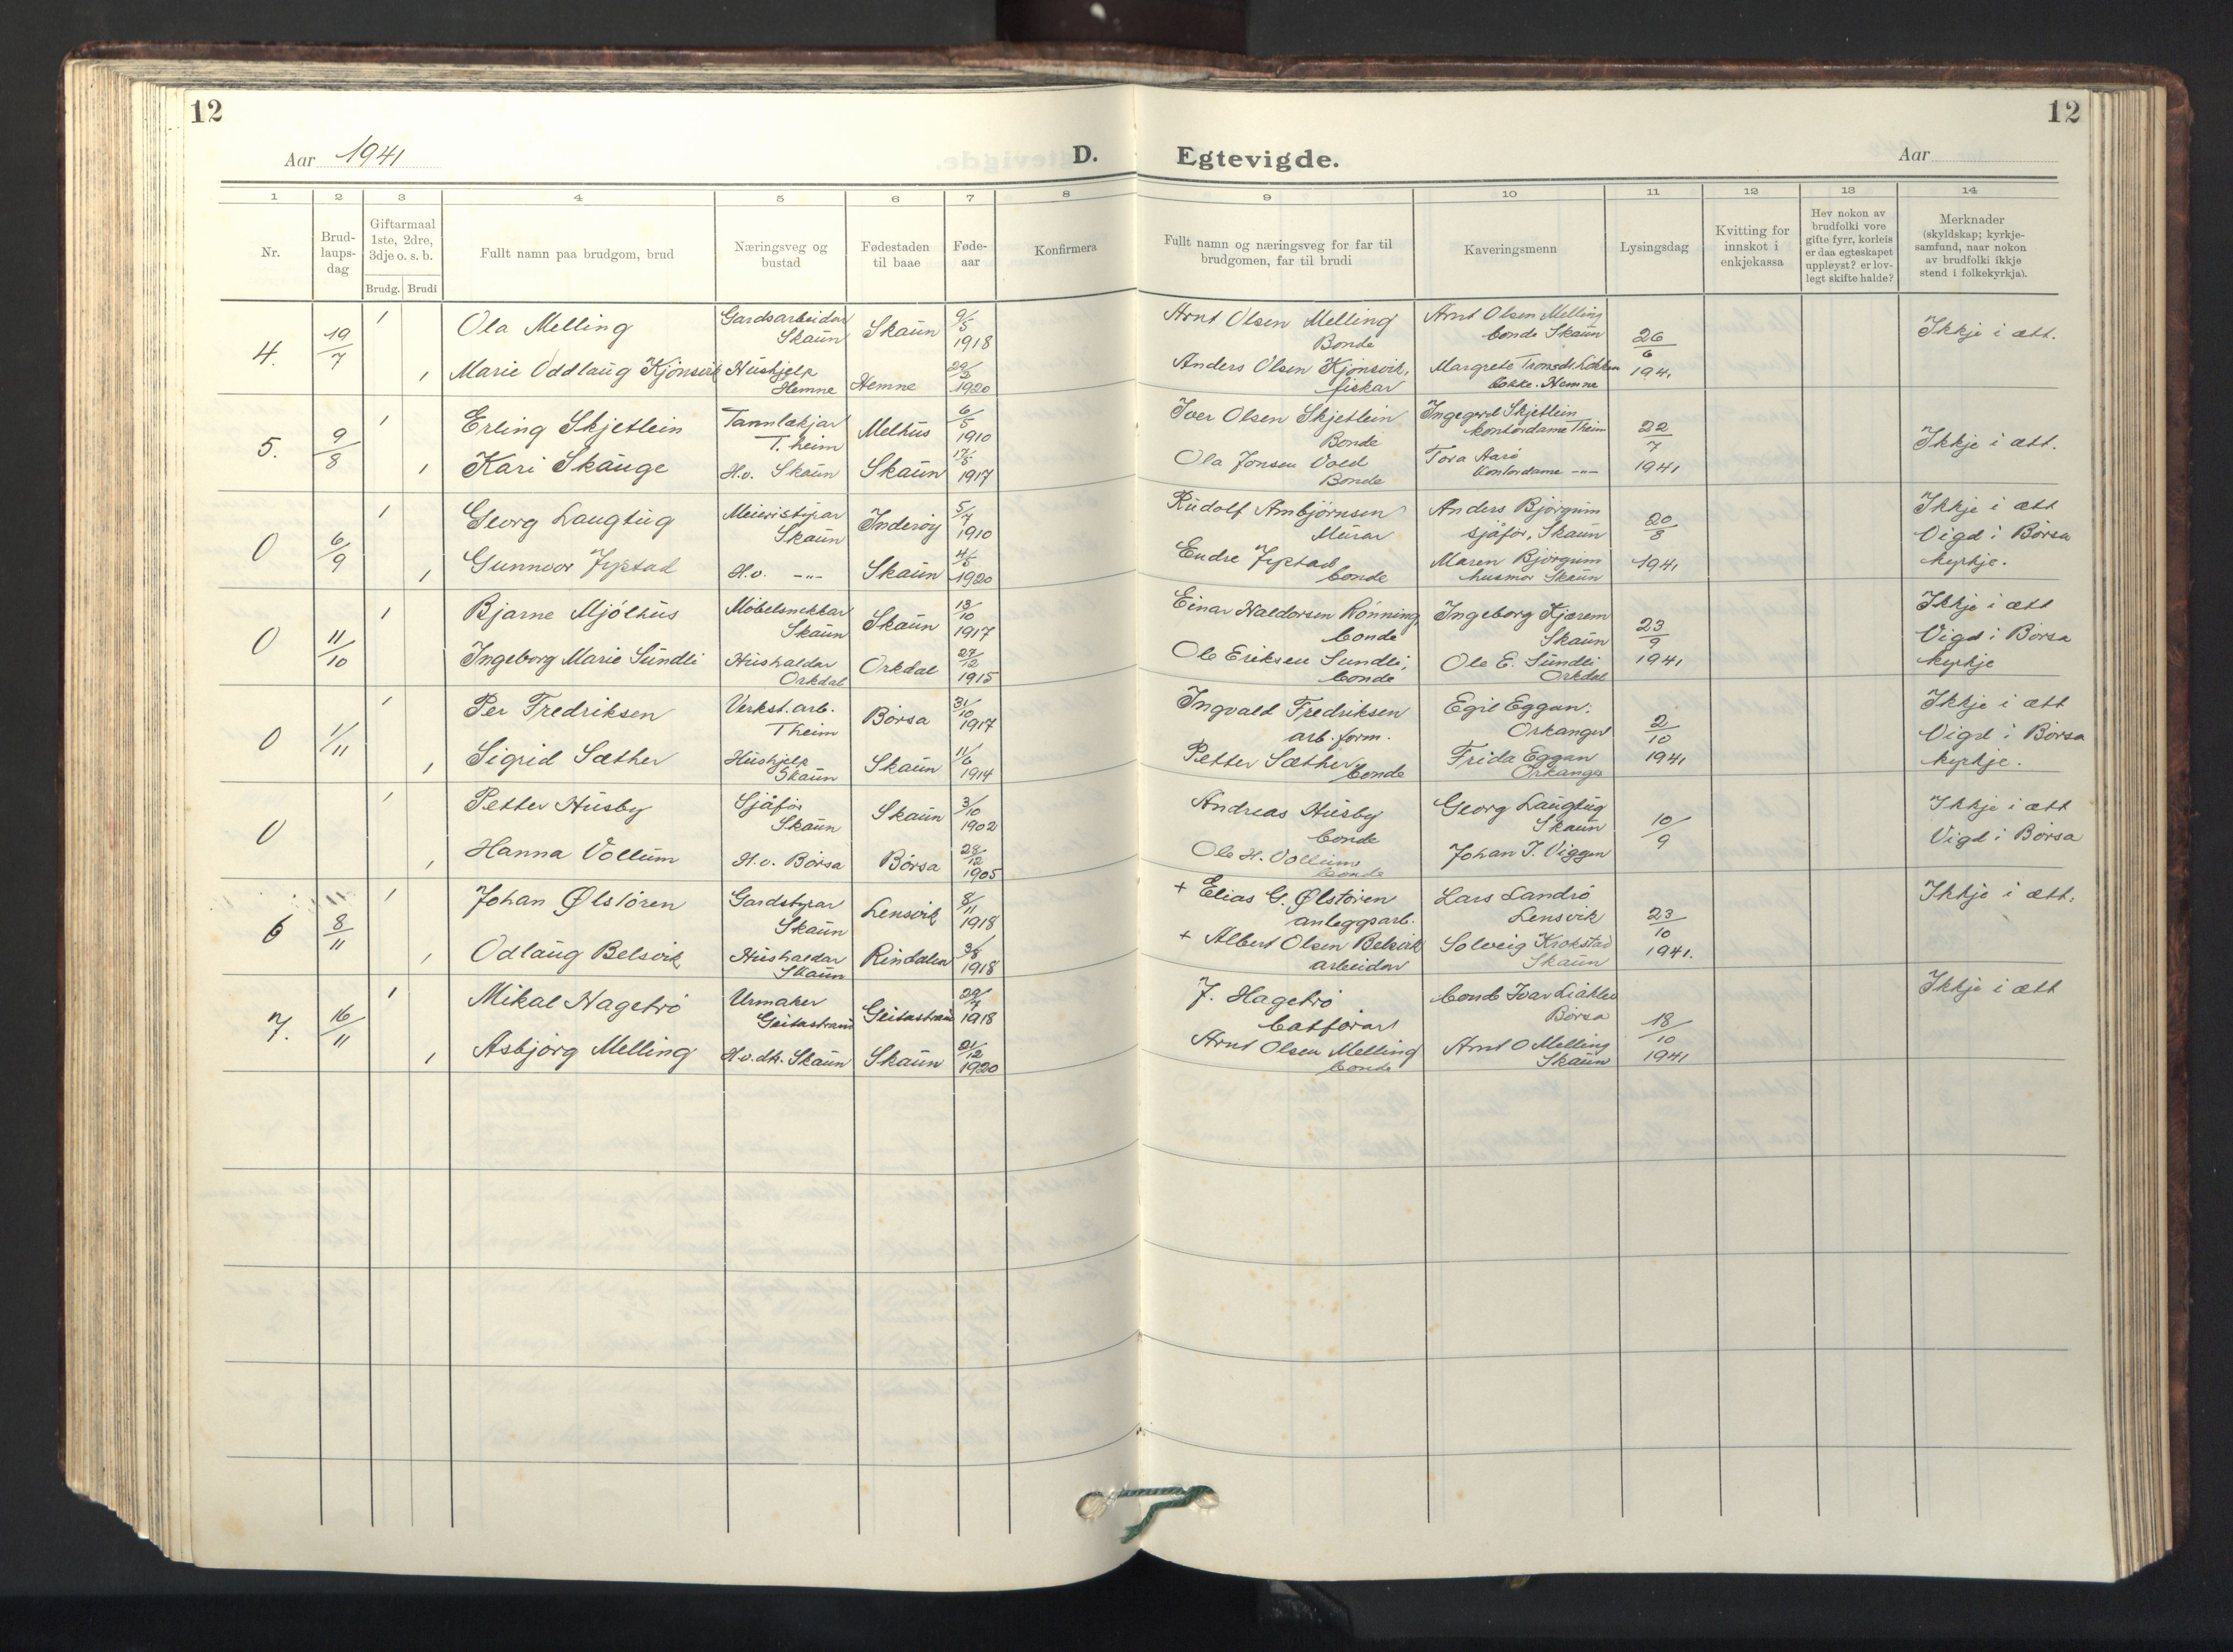 12
12
Aar 1941
D.
Egtevigde.
Aar
1 2 3 4 5 6 7 8 9 10 11 12 13 14
Nr.
Brud-
laups-
dag
Giftarmaal
1ste, 2dre,
3dje o. s. b.
Brudg. Brudi
Fullt namn paa brudgom, brud
Næringsveg og
bustad
Fødestaden
til baae
Føde-
aar
Konfirmera
Fullt namn og næringsveg for far til
brudgomen, far til brudi
Kaveringsmenn
Lysingsdag
Kvitting for
innskot i
enkjekassa
Hev nokon av
brudfolki vore
gifte fyrr, korleis
er daa egteskapet
uppløyst? er lov-
legt skifte halde?
Merknader
(skyldskap; kyrkje-
samfund, naar nokon
av brudfolki ikkje
stend i folkekyrkja).
4. 19/7
1 Ola Melling
Gardsarbeidar
Skaun
Skaun
9/5
1918
Arnt Olsen Melling
Bonde
Arnt Olsen Melling
bonde Skaun
26/6
1941
Ikkje i ætt.
1 Marie Oddlaug Kjönsvik
Hushjelp
Hemne
Hemne
1920
Anders Olsen Kjönsvik,
fiskar
Margrete
Hemne
5. 9/8
1 Erling Skjetlein
Tannlækjar
T.heim
Melhus
6/5
1910
Iver Olsen Skjetlein
Bonde
Ingegerd Skjetlein
kontordame Theim
22/7
1941
Ikkje i ætt.
1 Kari Skauge
H.v. Skaun
Skaun
17/5
1917
Ola Jonsen Vold
Bonde
Tora Aarö
Kontordame -"-
0 6/9
1 Georg Laugtug
Meieristyrar
Skaun
Inderöy
5/7
1910
Rudolf Arnbjörnsen
Murar
Anders Björgum
sjåför, Skaun
20/8
1941
Ikkje i ætt
Vigd i Börsa
kyrkje.
1 Gunnvor Jystad
H.v. -"-
Skaun
4/5
1920
Endre Jystad
bonde
Maren Björgum
husmor Skaun
0 11/10
1 Bjarne Mjölhus
Möbelsnekkar
Skaun
Skaun
13/10
1917
Einar Haldorsen Rönning
bonde
Ingeborg Kjærem
Skaun
23/9
1941
Ikkje i ætt
Vigd i Börsa
kyrkje
Ingeborg Marie Sundli
Hushaldar
Orkdal
Orkdal
27/12
1915
Ole Eriksen Sundli,
bonde
Ole E. Sundli
Orkdal
0 1/11
1 Per Fredriksen
Verkst.arb.
Theim
Börsa
31/10
1917
Ingvald Fredriksen
arb.form.
Egil Eggan.
Orkanger
2/10
1941
Ikkje i ætt
Vigd i Börsa
kyrkje.
1 Sigrid Sæther
Hushjelp
Skaun
Skaun
11/6
1914
Petter Sæther
bonde
Frida Eggan
Orkanger
0
1 Petter Husby
Sjåför
Skaun
Skaun
3/10
1902
Andreas Husby
bonde
Georg Laugtug
Skaun
10/9
Ikkje i ætt
Vigd i Börsa
1 Hanna Vollum
H.v. Börsa
Börsa
28/12
1905
Ole H. Vollum
bonde
Johan J. Viggen
6 8/11
1 Johan Ølstören
Gardstyrar
Skaun
Lensvik
8/11
1918
+ Elias G. Ølstören
anleggsarb.
Lars Landrö
Lensvik
23/10
1941.
Ikkje i ætt.
1 Odlaug Belsvik
Hushaldar
Skaun
Rindalen
3/8
1918
+ Albert Olsen Belsvik
arbeidar
Solveig Krokstad
Skaun
7. 16/11
1 Mikal Hagetrö
Urmaker
Geitastrand
Geitastrand
29/7
1918
J. Hagetrö
Båtförar
bonde Ivar
Börsa
18/10
1941
Ikkje i ætt
1 Asbjörg Melling
H.v.dtr. Skaun
Skaun
21/12
1920
Arnt Olsen Melling
bonde
Arnt O Melling
Skaun